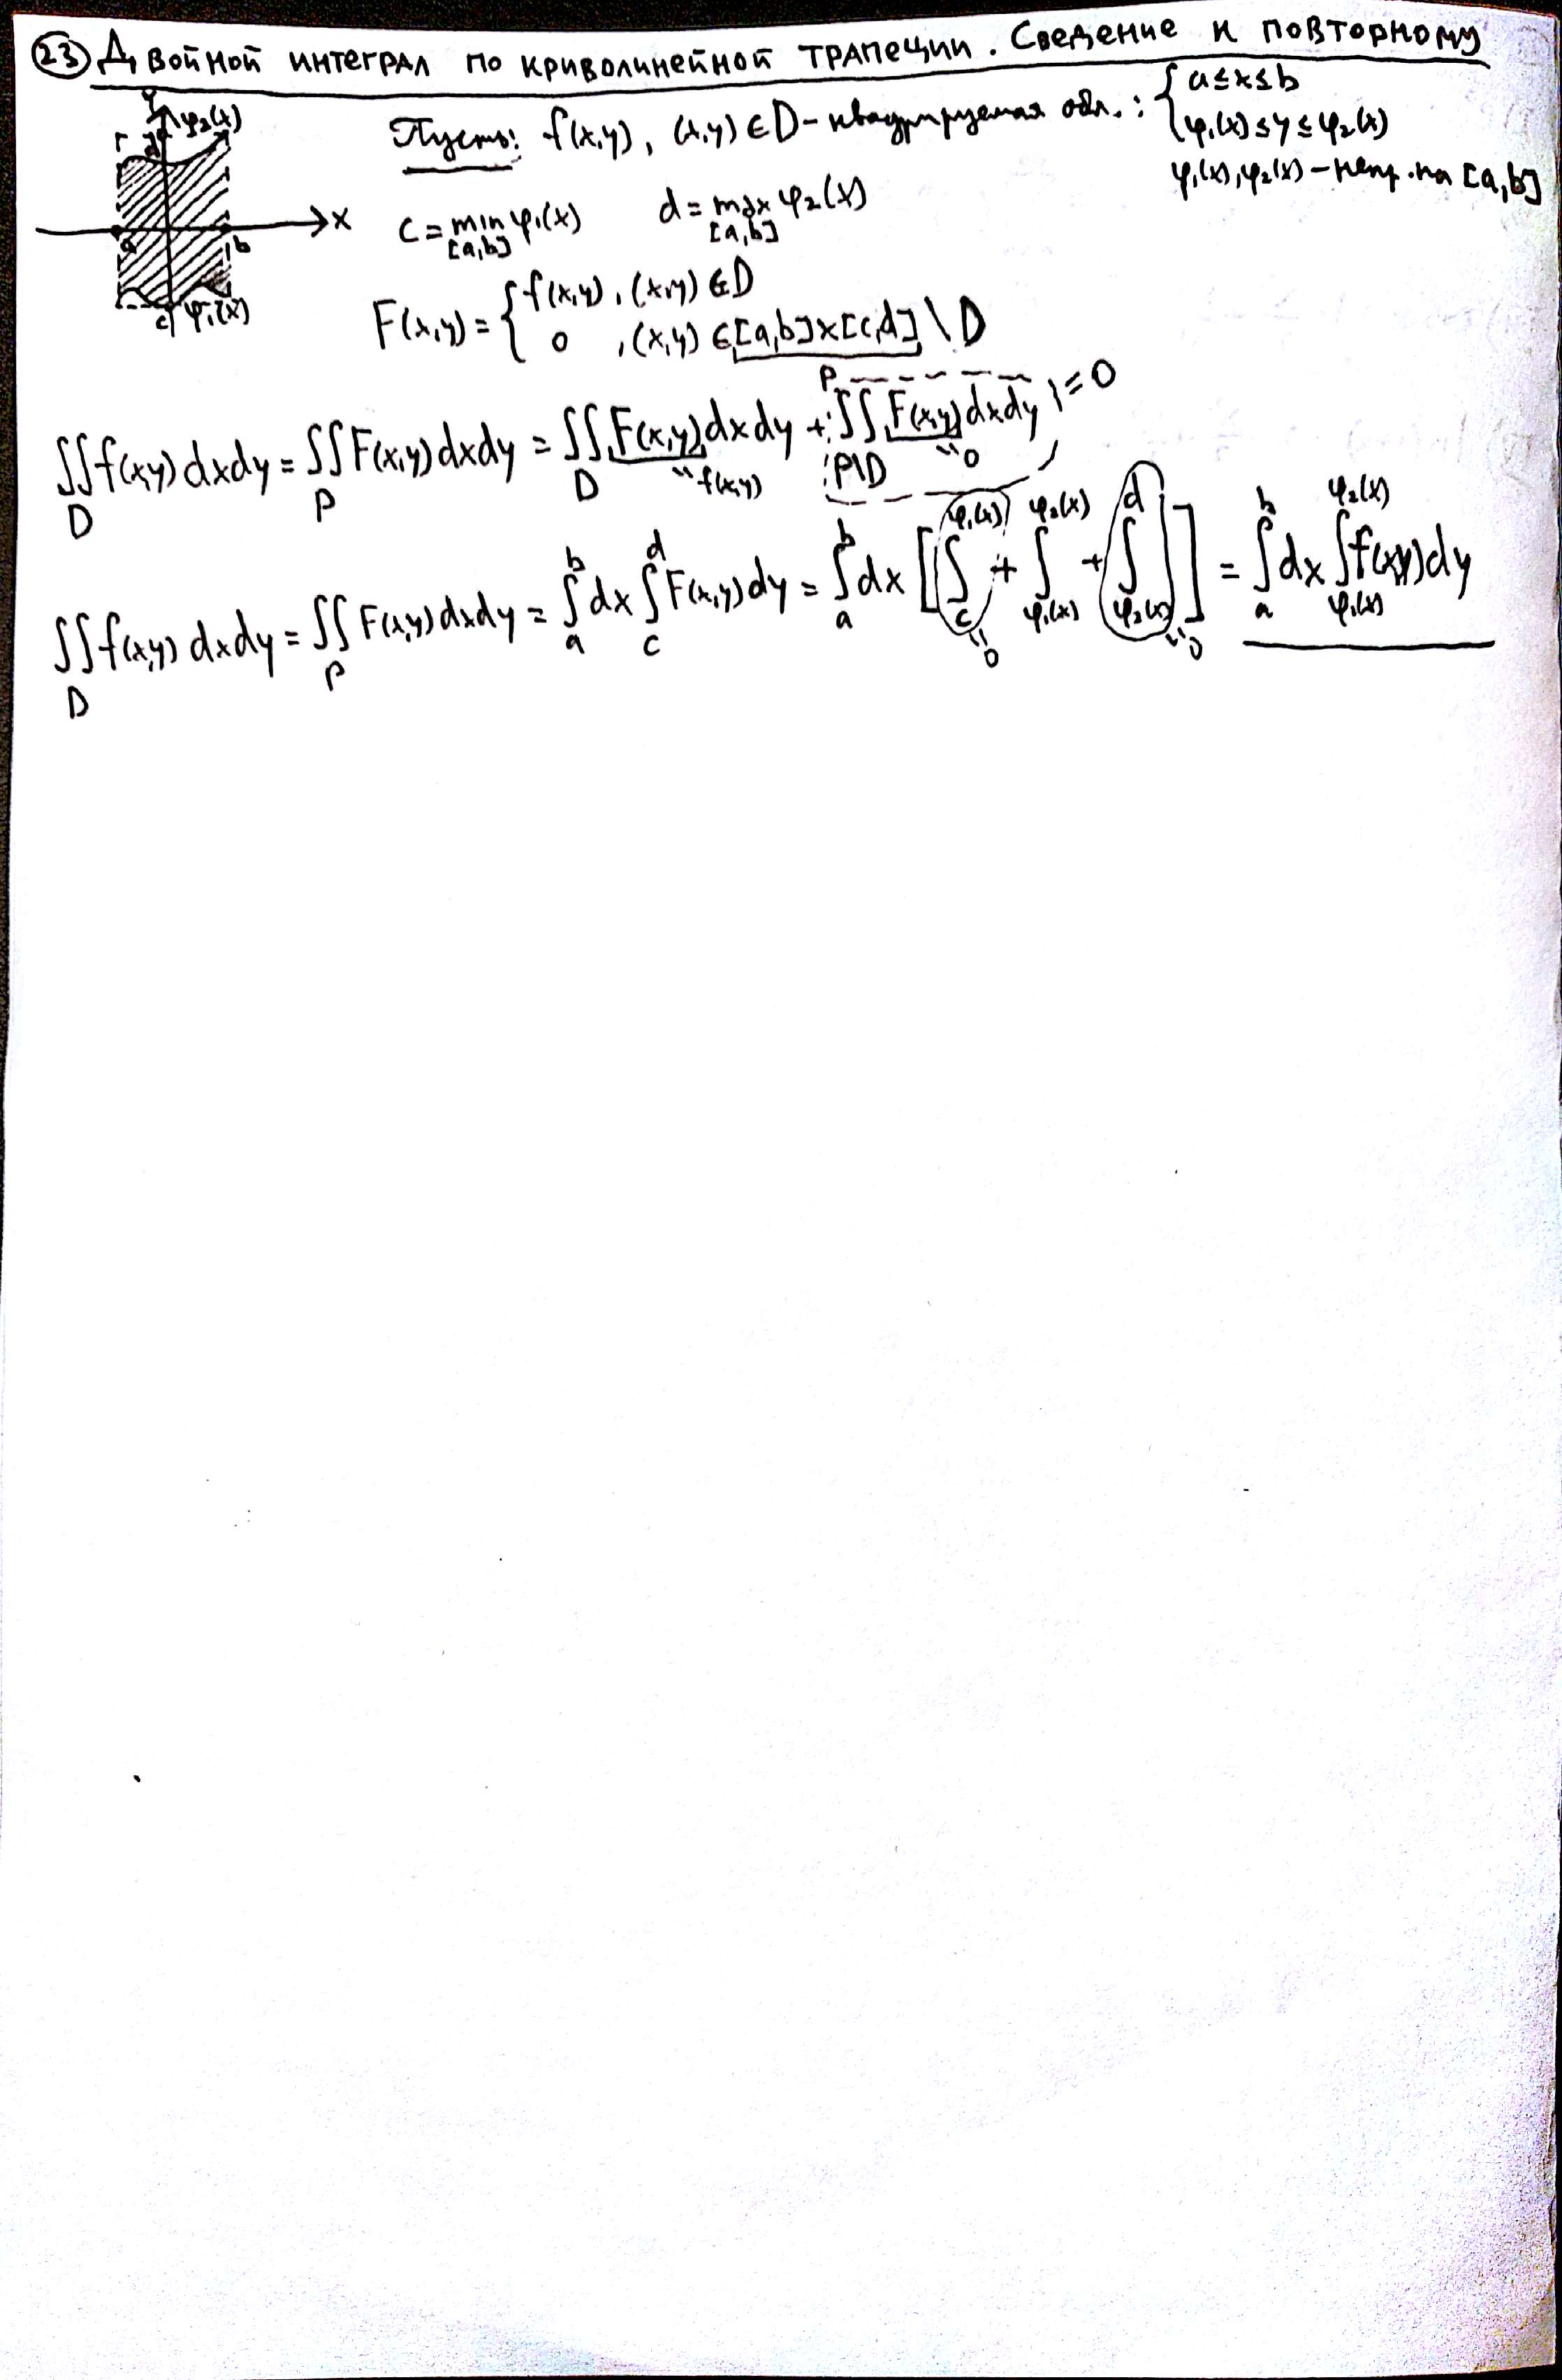 23 Двойной интеграл по криволинейной трапеции. Сведение к повторному
y φ₂(x) d x a b c φ₁(x)
Пусть: f(x,y), (x,y) ∈ D – квадрируемая обл.: { a≤x≤b
φ₁(x) ≤ y ≤ φ₂(x)
φ₁(x), φ₂(x) – непр. на [a,b]
c = min φ₁(x) [a,b] d = max φ₂(x) [a,b]
F(x,y) = { f(x,y), (x,y) ∈ D
0, (x,y) ∈ [a,b]×[c,d] \ D
P
∬_D f(x,y) dxdy = ∬_P F(x,y) dxdy = ∬_D F(x,y) dxdy + ∬_{P\D} F(x,y) dxdy = 0
" f(x,y) " 0
∬_D f(x,y) dxdy = ∬_P F(x,y) dxdy = ∫_a^b dx ∫_c^d F(x,y) dy = ∫_a^b dx [∫_c^{φ₁(x)} + ∫_{φ₁(x)}^{φ₂(x)} + ∫_{φ₂(x)}^d] = ∫_a^b dx ∫_{φ₁(x)}^{φ₂(x)} f(x,y) dy
" 0 " 0